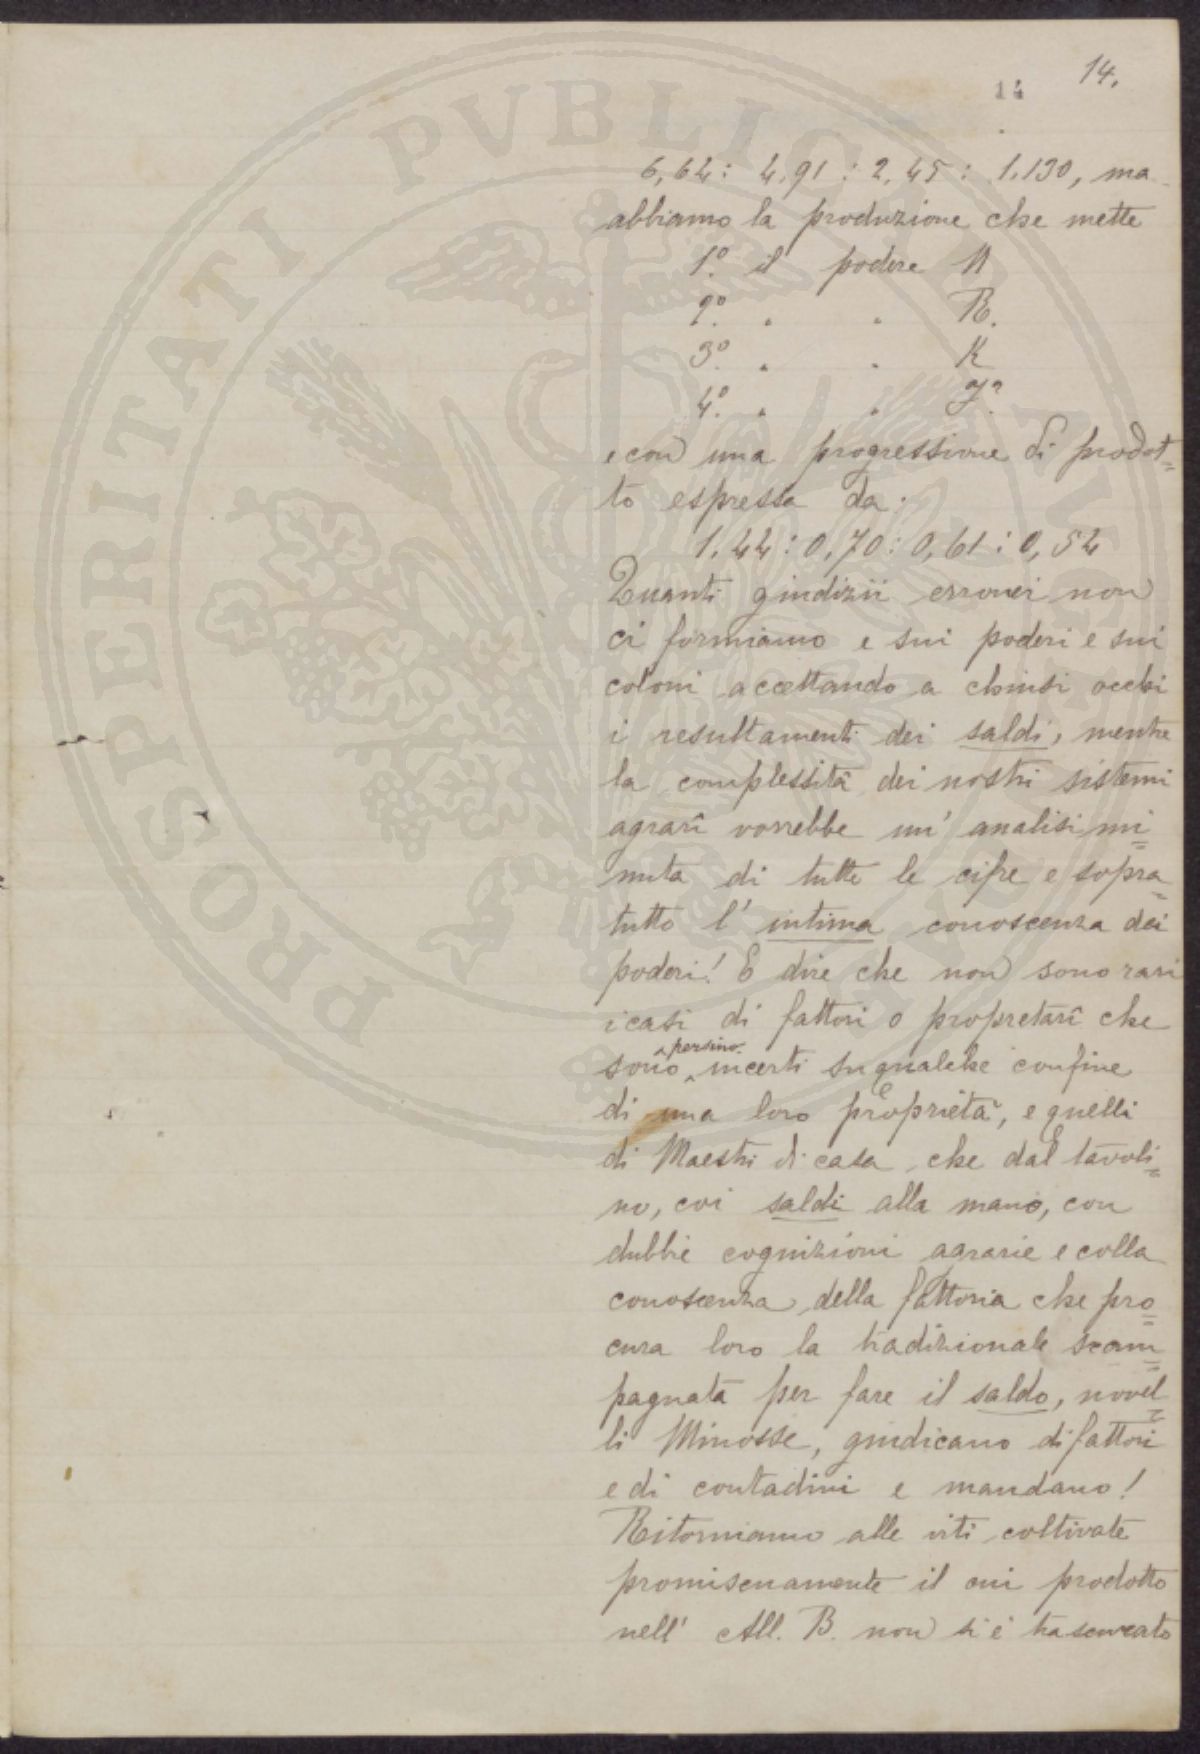 14
14.
6,64 : 4,91 : 2,45 : 1,130, ma
abbiamo la produzione che mette
1.º il podere N
2.º " " R.
3.º " " K
4.º " "
e con una progressione di prodot=
to espressa da:
1,44 : 0,70 : 0,61 : 0,54
Quanti giudizii erronei non
ci formiamo e sui poderi e sui
coloni accettando a chiusi occhi
i resultamenti dei saldi, mentre
la complessità dei nostri sistemi
agrarî vorrebbe un' analisi mi=
nuta di tutte le cifre e sopra=
tutto l' intima conoscenza dei
poderi! E dire che non sono rari
i casi di fattori o propretarî che
sono persino incerti su qualche confine
di una loro proprietà, e quelli
di Maestri di casa che dal tavoli=
no, coi saldi alla mano, con
dubbie cognizioni agrarie e colla
conoscenza della fattoria che pro=
cura loro la tradizionale scam=
pagnata per fare il saldo, novel=
li Minosse, giudicano di fattori
e di contadini e mandano!
Ritorniamo alle viti coltivate
promiscuamente il cui prodotto
nell' All. B. non si è trascurato
PROSPERITATI PVBLICAE